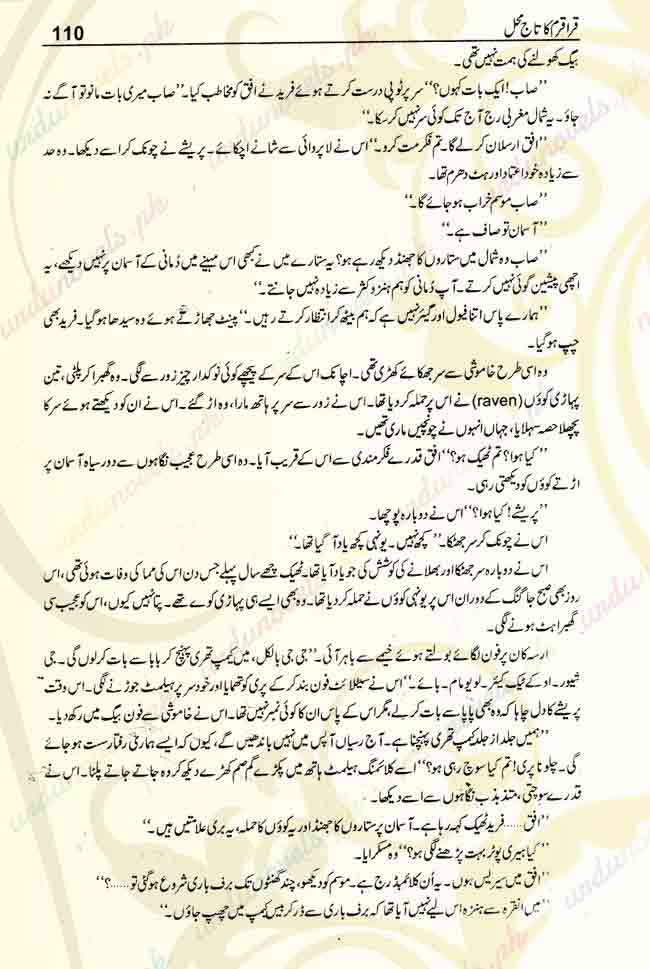 قراقرم کا تاج محل
110
بیگ کھولنے کی ہمت نہیں تھی۔
”صاب! ایک بات کہوں؟“ سر پر ٹوپی درست کرتے ہوئے فرید نے افق کو مخاطب کیا۔ ”صاب میری بات مانو تو آگے نہ
جاؤ۔ یہ شمال مغربی رج آج تک کوئی سر نہیں کر سکا۔“
”افق ارسلان کر لے گا۔ تم فکر مت کرو۔“ اس نے لاپروائی سے شانے اچکائے۔ پریشے نے چونک کر اسے دیکھا۔ وہ حد
سے زیادہ خود اعتماد اور ہٹ دھرم تھا۔
”صاب موسم خراب ہو جائے گا۔“
”آسمان تو صاف ہے۔“
”صاب وہ شمال میں ستاروں کا جھنڈ دیکھ رہے ہو؟ یہ ستارے میں نے کبھی اس مہینے میں دُمانی کے آسمان پر نہیں دیکھے، یہ
اچھی پیشین گوئی نہیں کرتے۔ آپ دُمانی کو ہم ہنزو کٹز سے زیادہ نہیں جانتے۔“
”ہمارے پاس اتنا فیول اور گیئر نہیں ہے کہ ہم بیٹھ کر انتظار کرتے رہیں۔“ پینٹ جھاڑتے ہوئے وہ سیدھا ہو گیا۔ فرید بھی
چپ ہو گیا۔
وہ اسی طرح خاموشی سے سر جھکائے کھڑی تھی۔ اچانک اس کے سر کے پیچھے کوئی نوکدار چیز زور سے لگی۔ وہ گھبرا کر پلٹی، تین
پہاڑی کوؤں (raven) نے اس پر حملہ کر دیا تھا۔ اس نے زور سے سر پر ہاتھ مارا، وہ اڑ گئے۔ اس نے ان کو دیکھتے ہوئے سر کا
پچھلا حصہ سہلایا، جہاں انہوں نے چونچیں ماری تھیں۔
”کیا ہوا؟ تم ٹھیک ہو؟“ افق قدرے فکرمندی سے اس کے قریب آیا۔ وہ اسی طرح عجیب نگاہوں سے دور سیاہ آسمان پر
اڑتے کوؤں کو دیکھتی رہی۔
”پریشے! کیا ہوا؟“ اس نے دوبارہ پوچھا۔
اس نے چونک کر سر جھٹکا۔ ”کچھ نہیں۔ یونہی کچھ یاد آ گیا تھا۔“
اس نے دوبارہ سر جھٹکا اور بھلانے کی کوشش کی جو یاد آیا تھا۔ ٹھیک چھے سال پہلے جس دن اس کی مما کی وفات ہوئی تھی، اس
روز بھی صبح جاگنگ کے دوران اس پر یونہی کوؤں نے حملہ کر دیا تھا۔ وہ بھی ایسے ہی پہاڑی کوے تھے۔ پتا نہیں کیوں، اس کو عجیب سی
گھبراہٹ ہونے لگی۔
ارسہ کان پر فون لگائے بولتے ہوئے خیمے سے باہر آئی۔ ”جی جی بالکل، میں کیمپ تھری پہنچ کر بابا سے بات کر لوں گی۔ جی
شیور۔ اوکے ٹیک کیئر۔ لو یو مام۔ بائے۔“ اس نے سیٹلائٹ فون بند کر کے پری کو تھمایا اور خود سر پر ہیلمٹ جوڑنے لگی۔ اس وقت
پریشے کا دل چاہا کہ وہ بھی پاپا سے بات کر لے، مگر اس کے پاس ان کا کوئی نمبر نہیں تھا۔ اس نے خاموشی سے فون بیگ میں رکھ دیا۔
”ہمیں جلد از جلد کیمپ تھری پہنچنا ہے۔ آج رسیاں آپس میں نہیں باندھیں گے، کیوں کہ ایسے ہماری رفتار سست ہو جائے
گی۔ چلو نا پری! تم کیا سوچ رہی ہو؟“ اسے کلائمنگ ہیلمٹ ہاتھ میں پکڑے گم صم کھڑے دیکھ کر وہ جاتے جاتے پلٹا۔ اس نے
قدرے سوچتی، متذبذب نگاہوں سے اسے دیکھا۔
”افق...... فرید ٹھیک کہہ رہا ہے۔ آسمان پر ستاروں کا جھنڈ اور یہ کوؤں کا حملہ، یہ بری علامتیں ہیں۔“
”کیا ہیری پوٹر بہت پڑھنے لگی ہو؟“ وہ مسکرایا۔
”افق میں سیریس ہوں۔ یہ اَن کلائمبڈ رج ہے۔ موسم کو دیکھو، چند گھنٹوں تک برف باری شروع ہو گئی تو......؟“
”میں انقرہ سے ہنزہ اس لیے نہیں آیا تھا کہ برف باری سے ڈر کر بیس کیمپ میں چھپ جاؤں۔“
urdunovels.pk